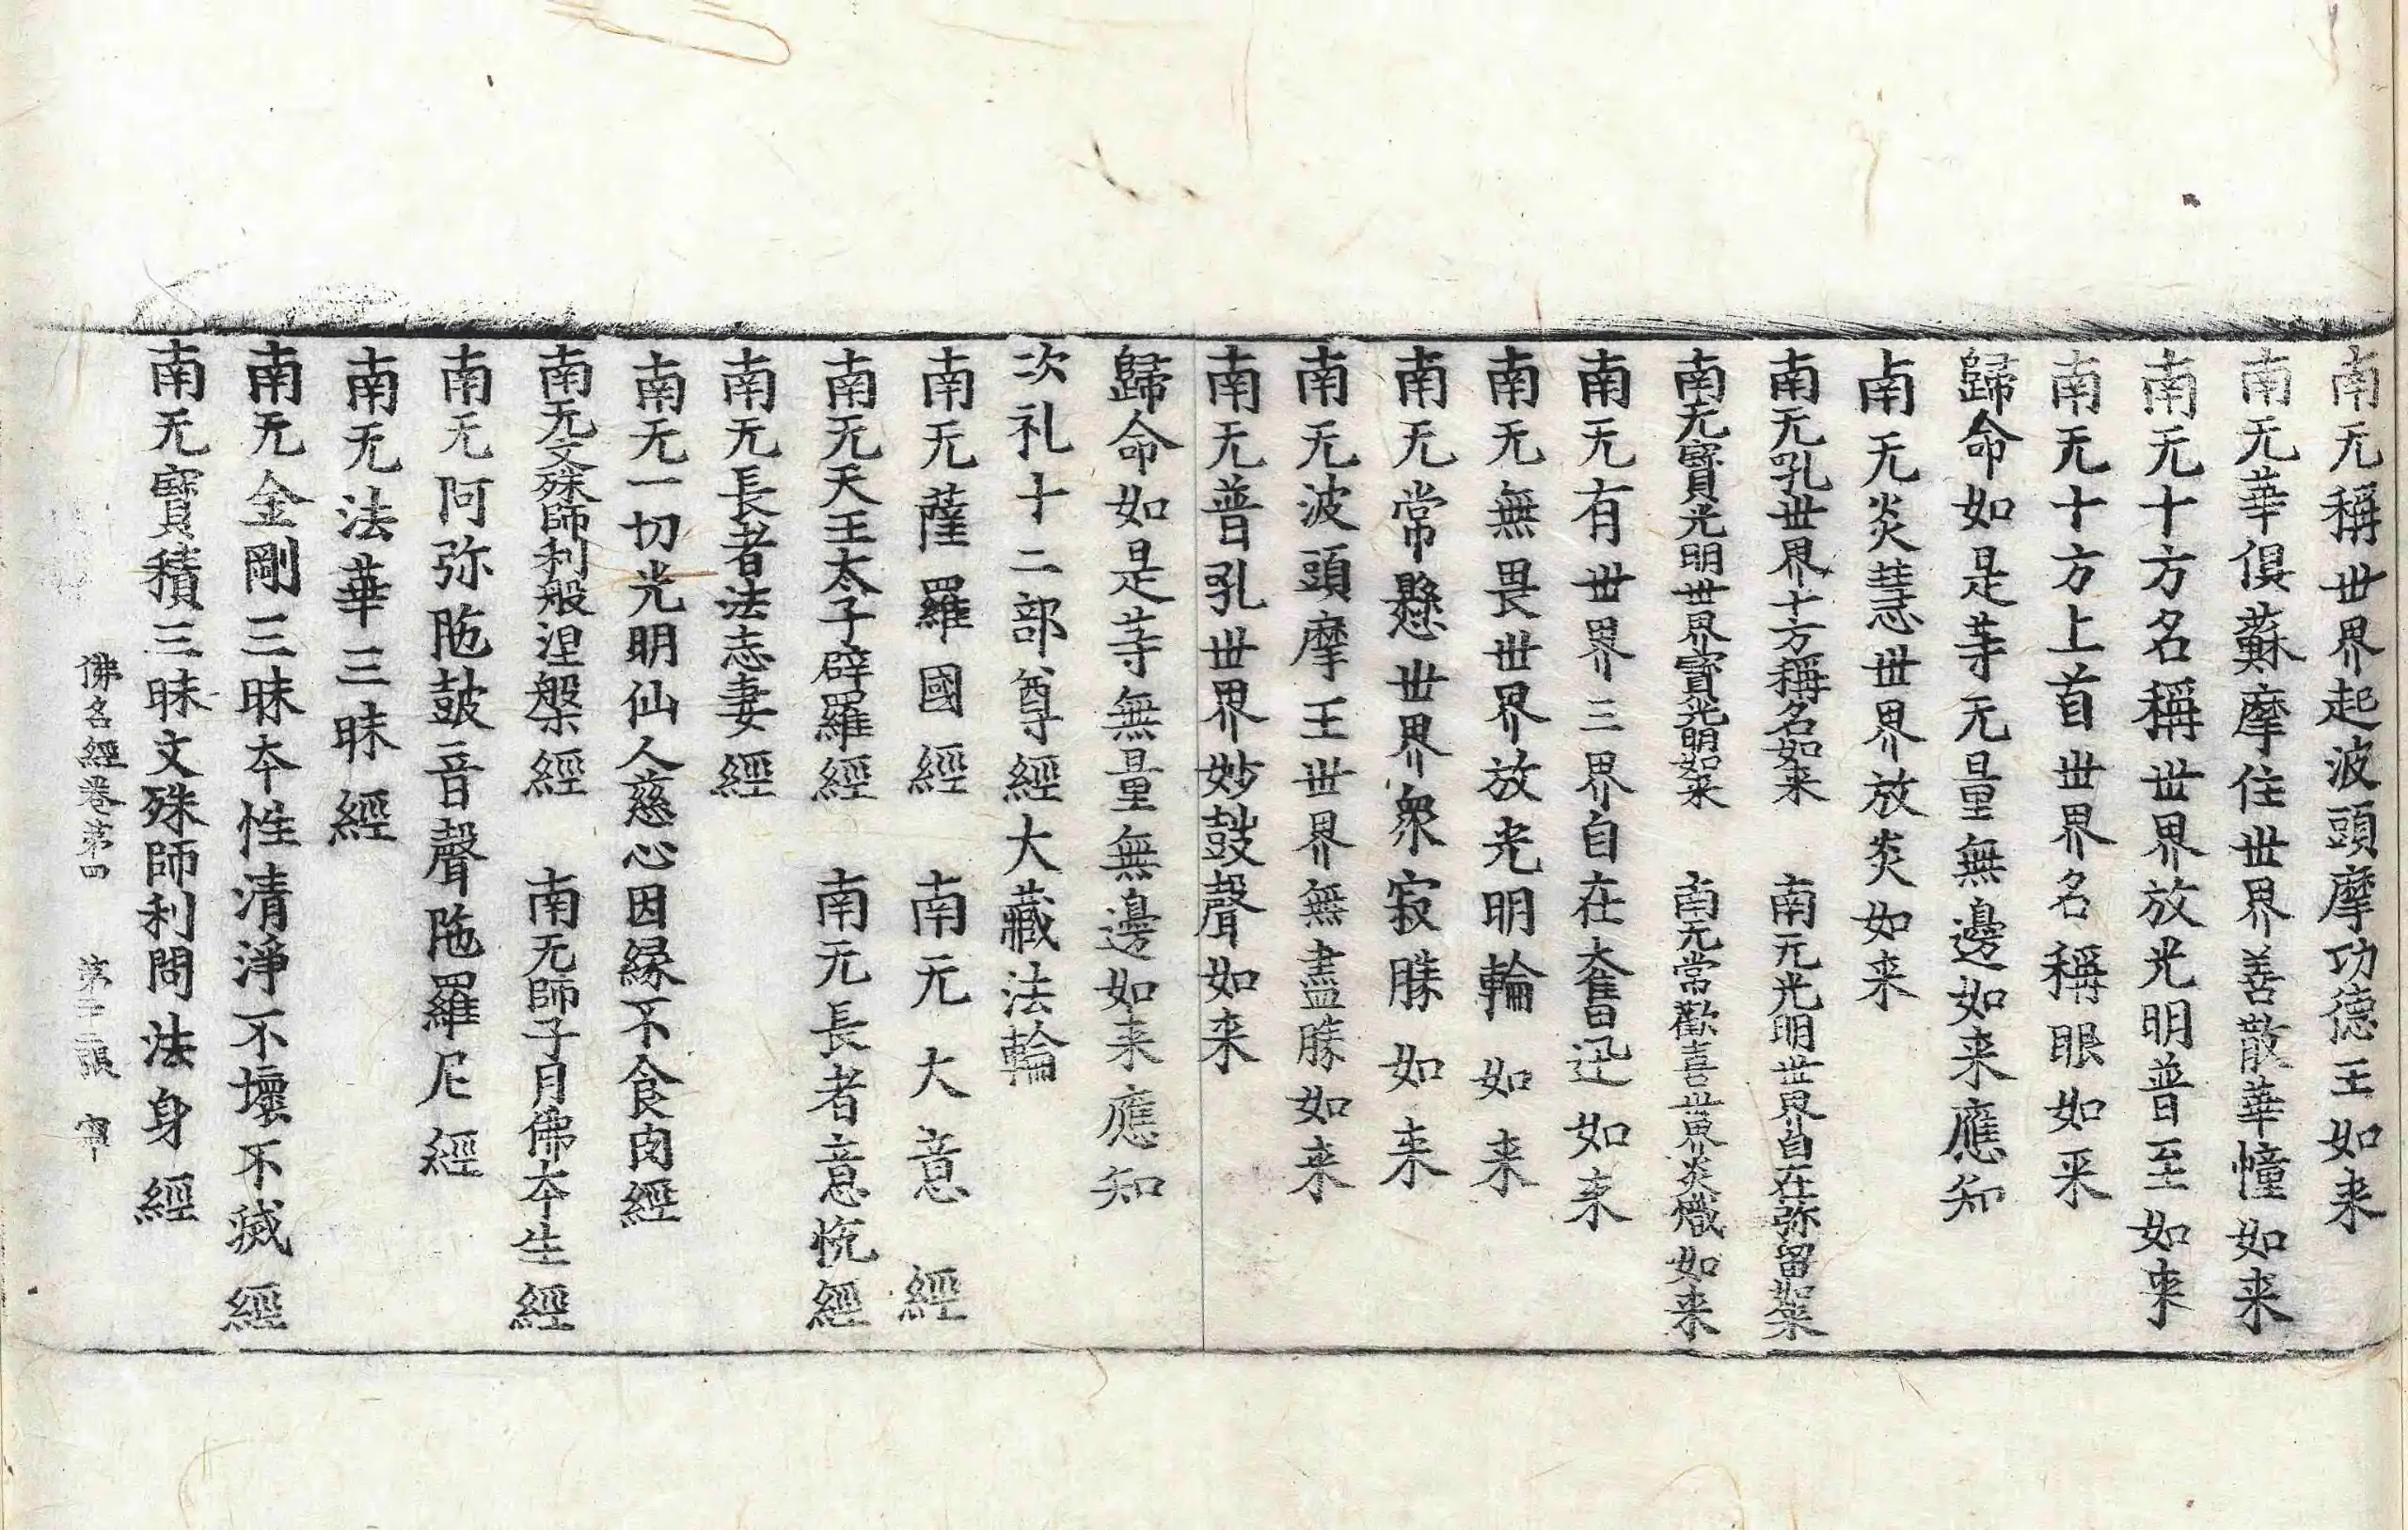 南无稱世界起波頭摩功德王如来
南无華俱蘇摩住世界善散華幢如来
南无十方名稱世界放光明普至如来
南无十方上首世界名稱眼如来
歸命如是等无量無邊如来應知
南无炎慧世界放炎如来
南无吼世界十方稱名如来 南无光明世界自在弥留如来
南无寶光明世界寶光明如来 南无常歡喜世界炎熾如来
南无有世界三界自在奮迅如来
南无無畏世界放光明輪如来
南无常懸世界衆寂勝如来
南无波頭摩王世界無盡勝如来
南无普吼世界妙鼓聲如来
歸命如是等無量無邊如来應知
次礼十二部尊經大藏法輪
南无薩羅國經 南无大意經
南无天王太子辟羅經 南无長者意恱經
南无長者法志妻經
南无一切光明仙人慈心因緣不食肉經
南无文殊師利般涅槃經 南无師子月佛夲生經
南无阿弥陁鼓音聲陁羅尼經
南无法華三昧經
南无金剛三昧夲性清淨不壞不滅經
南无寶積三昧文殊師利問法身經
佛名經卷第四 第 張